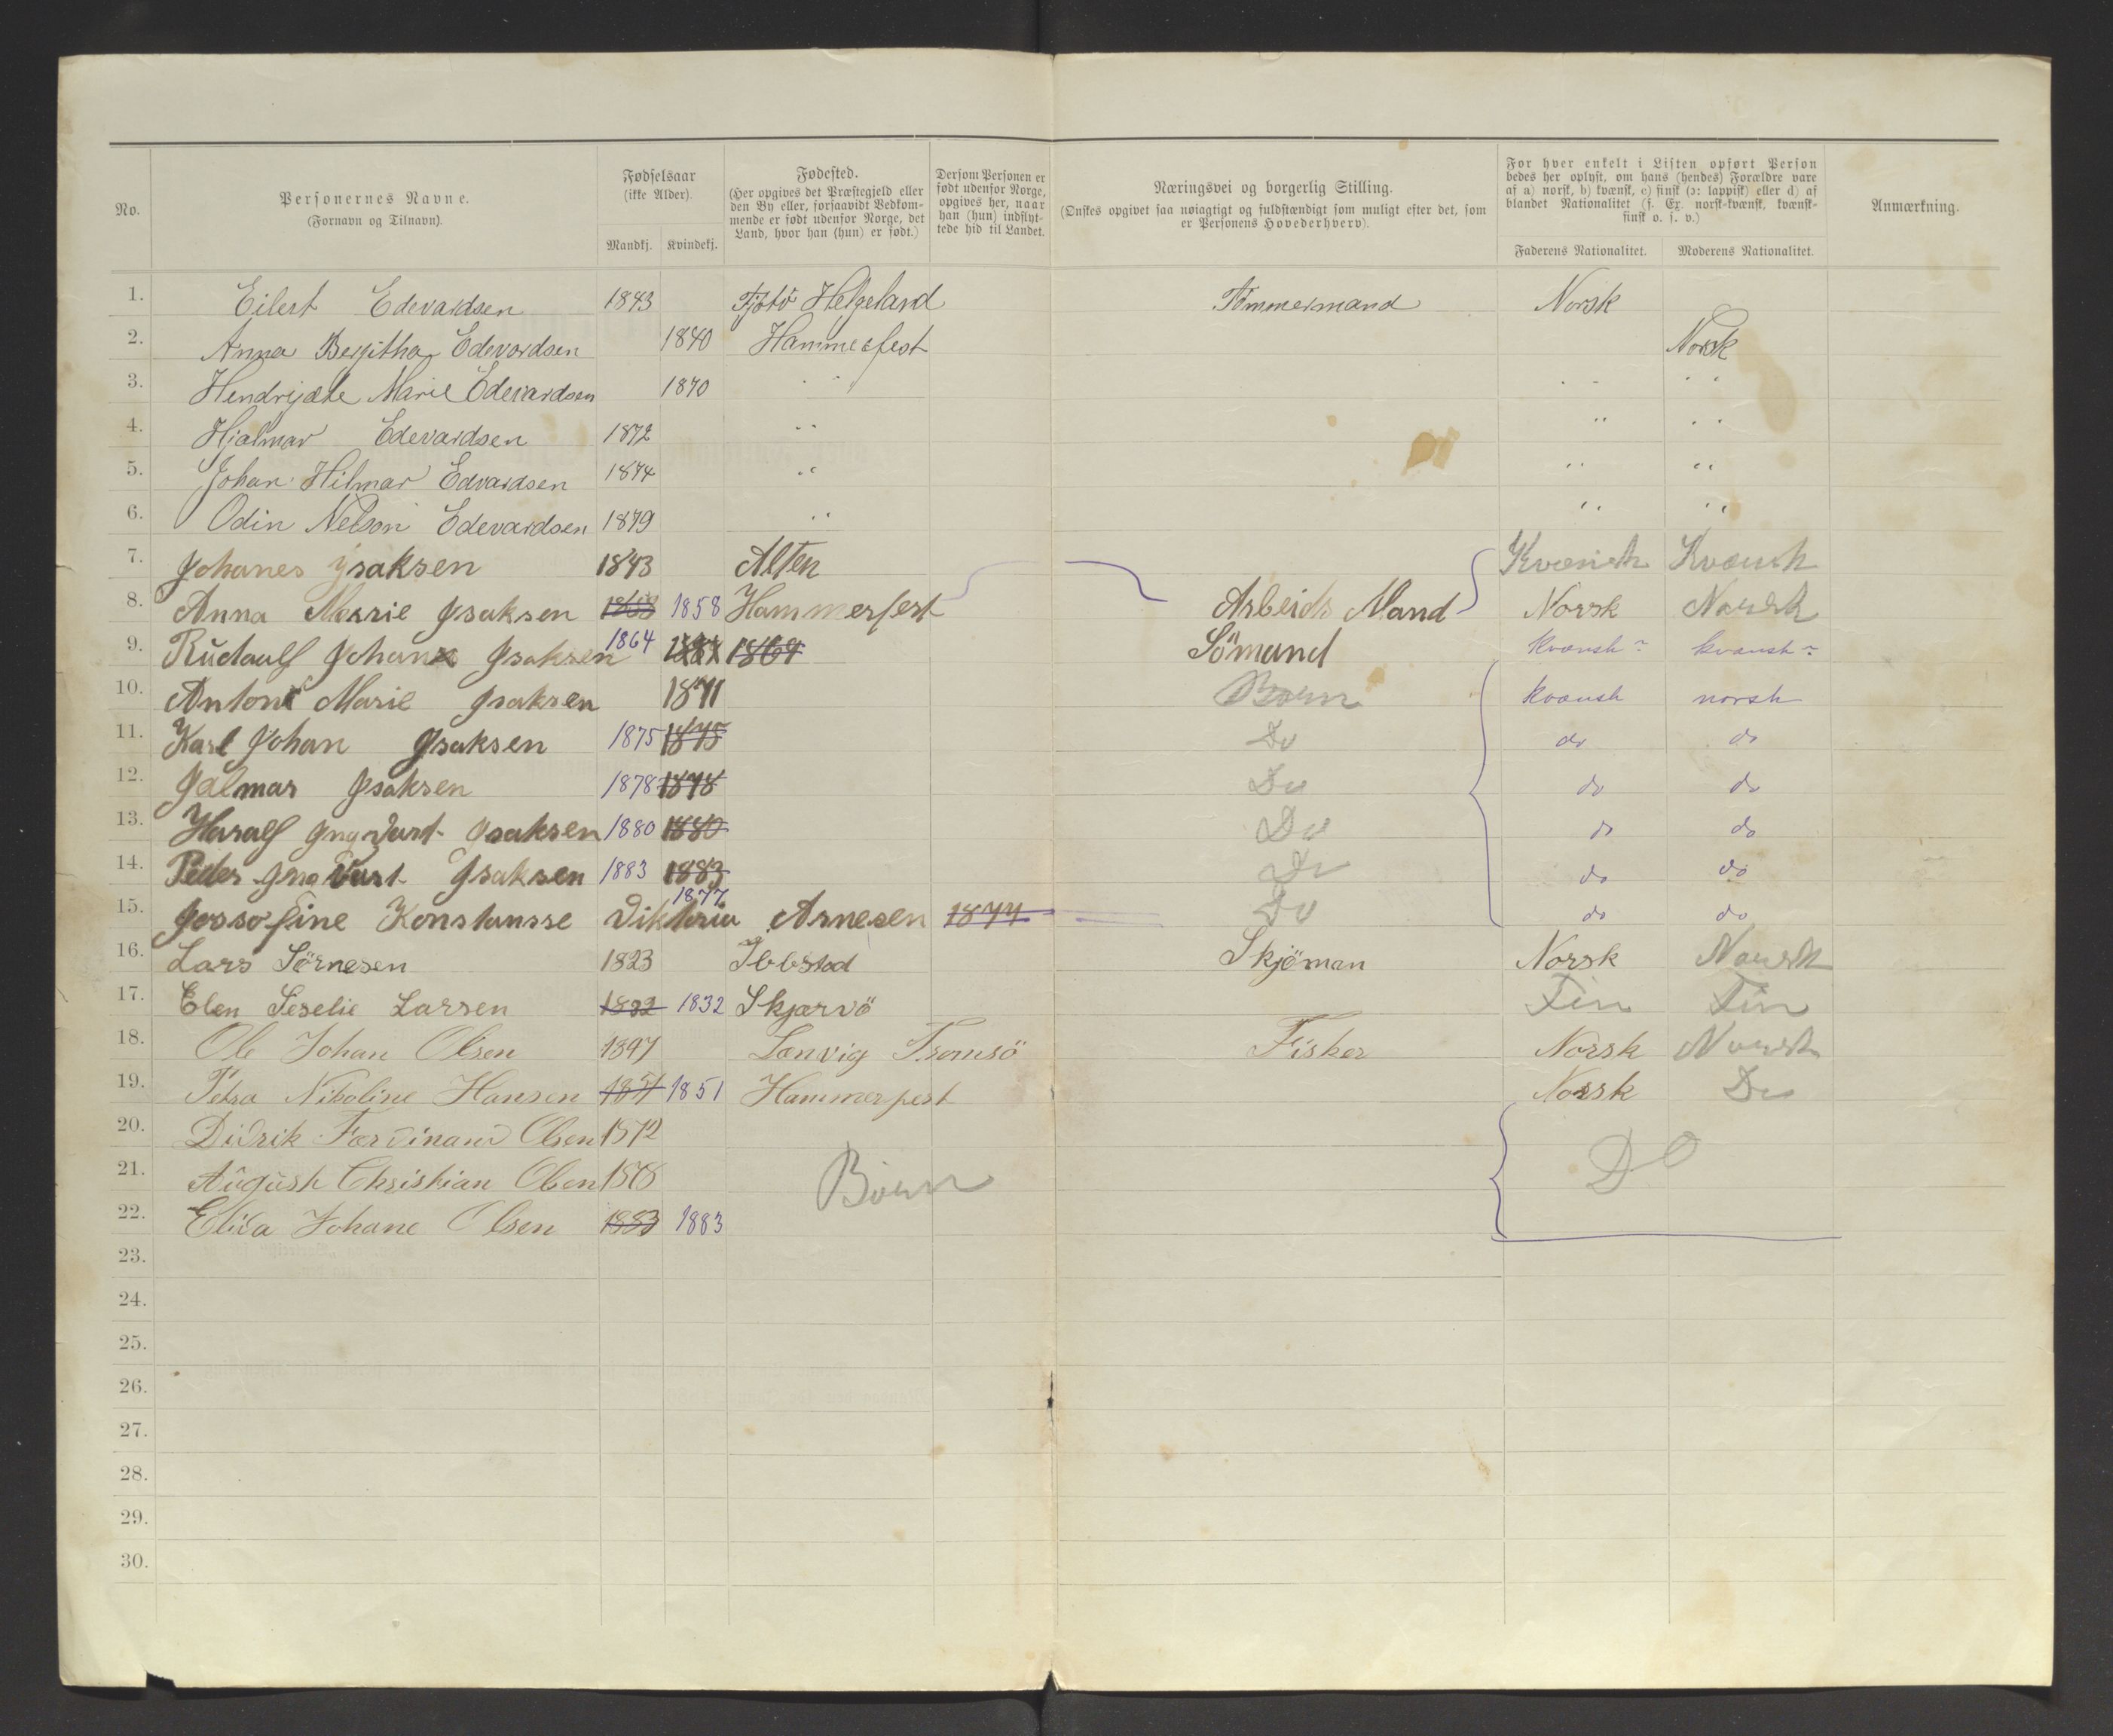 No.
Personernes Navne.
(Fornavn og Tilnavn).
Fødselsaar
(ikke Alder).
Mandkj. Kvindekj.
Fødested.
(Her opgives det Præstegjeld eller
den By eller, forsaavidt Vedkom-
mende er født udenfor Norge, det
Land, hvor han (hun) er født.)
Dersom Personen er
født udenfor Norge,
opgives her, naar
han (hun) indflyt-
tede hid til Landet.
Næringsvei og borgerlig Stilling.
(Ønskes opgivet saa nøiagtigt og fuldstændigt som muligt efter det, som
er Personens Hovederhverv).
For hver enkelt i Listen opført Person
bedes her oplyst, om hans (hendes) Forældre vare
af a) norsk, b) kvænsk, c) finsk (ɔ: lappisk) eller d) af
blandet Nationalitet (f. Ex. norsk-kvænsk, kvænsk-
finsk o. s. v.)
Faderens Nationalitet. Moderens Nationalitet.
Anmærkning.
1. Eilert Edevardsen 1843 Tjötö Helgeland Tömmermand Norsk
2. Anna Bergitha Edevardsen 1840 Hammerfest Norsk
3. Hendrijæte Marie Edevardsen 1870 " " "
4. Hjalmar Edevardsen 1872 " " "
5. Johan Hilmar Edvardsen 1874 " " "
6. Odin Nelson Edevardsen 1879 " " "
7. Johanes Ysaksen 1843 Alten Kvænsk Kvænsk
8. Anna Marrie Jsaksen 1858 1858 Hammerfest Arbeids Mand Norsk Norsk
9. Rudaulf Johan Jsaksen 1864 1864 Sömand kvænsk kvænsk
10. Antone Marie Jsaksen 1871 Børn kvænsk norsk
11. Karl Johan Jsaksen 1875 1875 Do do do
12. Jalmar Jsaksen 1878 1878 Do do do
13. Haralf Jngvart Jsaksen 1880 1880 Do do do
14. Peder Jngvart Jsaksen 1883 1883 Do do do
15. Jossofine Konstansse Viktoria Arnesen 1877 1877 Do do do
16. Lars Sörnesen 1823 Ibbstad Skjöman Norsk Norsk
17. Elen Seselie Larsen 1832 1832 Skjærvö Fin Fin
18. Ole Johan Olsen 1847 Lenvig Tromsö Fisker Norsk Norsk
19. Petra Nikoline Hansen 1851 1851 Hammerfest Norsk Do
20. Didrik Færdinand Olsen 1872
21. August Christian Olsen 1878 Børn Do
22. Elida Johane Olsen 1883 1883
23.
24.
25.
26.
27.
28.
29.
30.